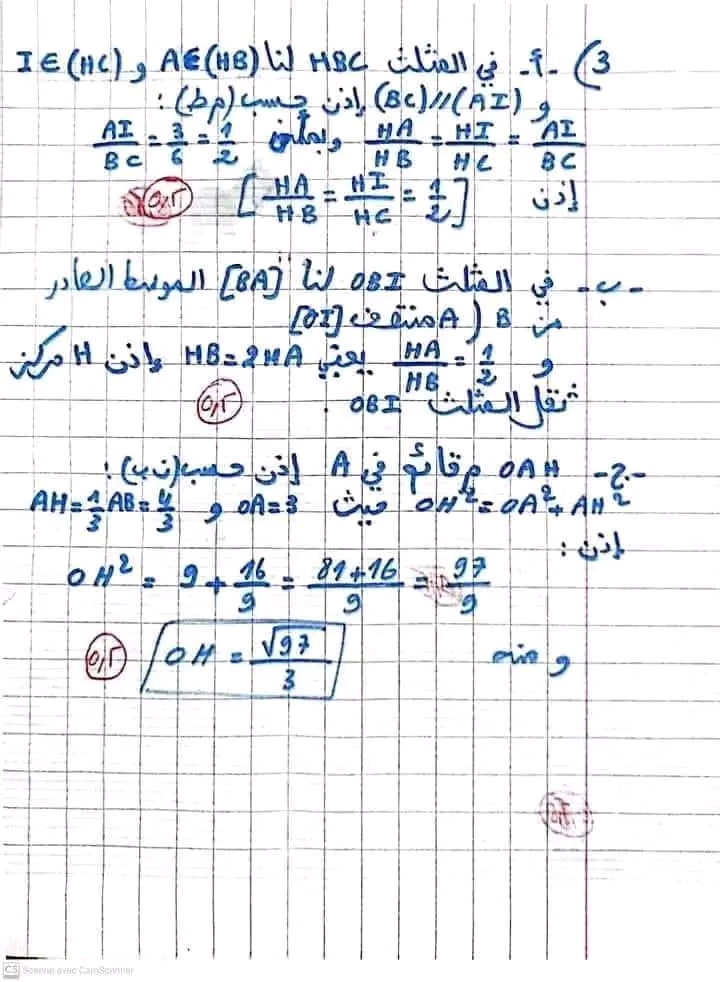 3) -أ- في المثلث HBC لنا A∈(HB) و I∈(HC)
و (BC)//(AI) إذن حسب (م ط):
HA/HB = HI/HC = AI/BC وبما أن AI/BC = 3/6 = 1/2
إذن [HA/HB = HI/HC = 1/2] 0,5
-ب- في المثلث OBI لنا [BA] الموسط الصادر
من B (A منتصف [OI]
و HA/HB = 1/2 يعني HB = 2HA وإذن H مركز
ثقل المثلث OBI. 0,5
-ج- OAH م قائم في A إذن حسب (ن ب):
OH² = OA² + AH² حيث OA = 3 و AH = 1/3 AB = 4/3
إذن:
OH² = 9 + 16/9 = 81+16/9 = 97/9
و منه OH = √97/3 0,5
CS Scanné avec CamScanner